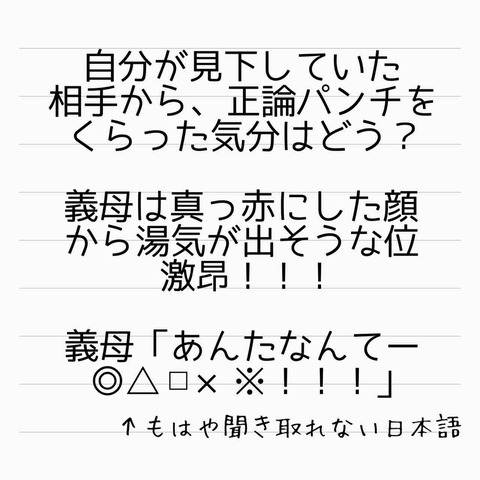 自分が見下していた
相手から、正論パンチを
くらった気分はどう？
義母は真っ赤にした顔
から湯気が出そうな位
激昂！！！
義母「あんたなんてー
◎△□× ※！！！」
↑もはや聞き取れない日本語